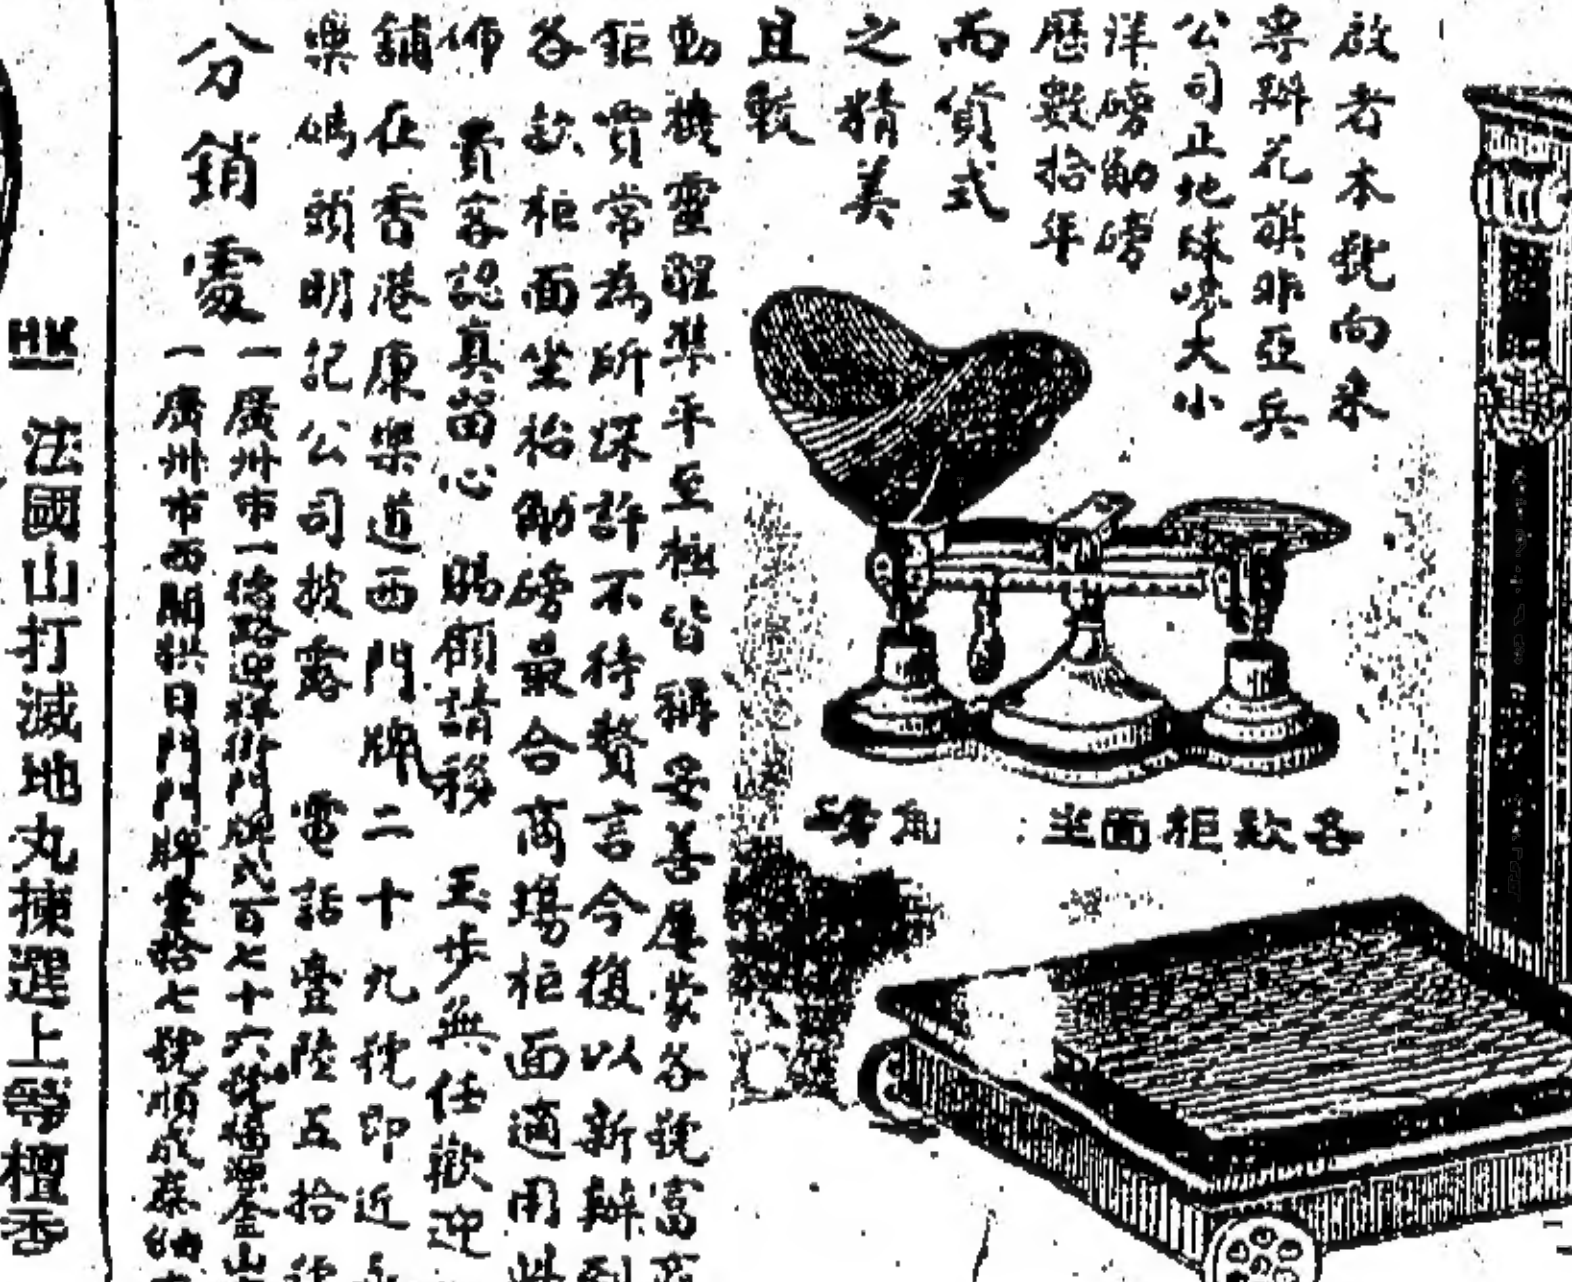 啟者本號向來
專辦花旗非亞兵
公司正地球嘜大小
洋磅𠜎磅
歷數拾年
而貨式
之精美
且較
動機靈程準平至極皆稱妥善屢蒙各號富商
鉅賈常為所深許不待贅言今復以新辦到
各款柜面坐枱𠜎磅最合商場柜面適用
佈 貴客認真留心 賜顧請移 玉步無任歡迎
舖在香港康樂道西門牌二十九號即近
樂碼頭明記公司披露 電話壹陸五拾
分銷處
一廣州市一德路迎祥街門牌 百七十六號
一廣州市西關拱日門門牌壹拾七號順成
各款柜面坐 角磅
法國山打滅地丸揀選上等檀香